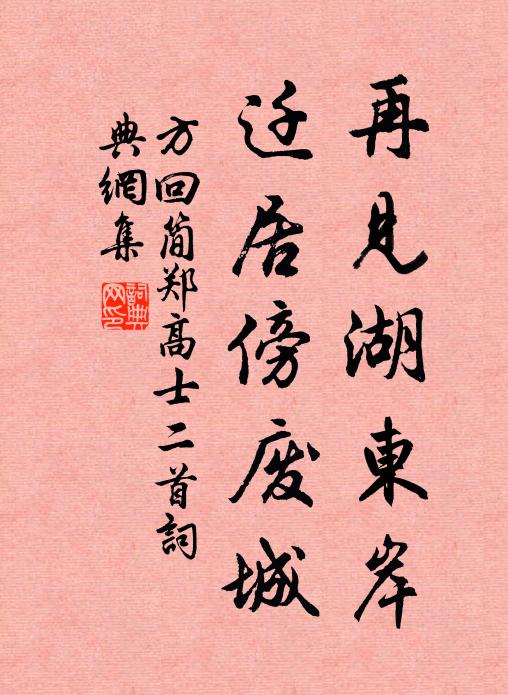 再见湖東岸
迁居傍废城
方回简郑高士二首詞
典網集
詞典网印